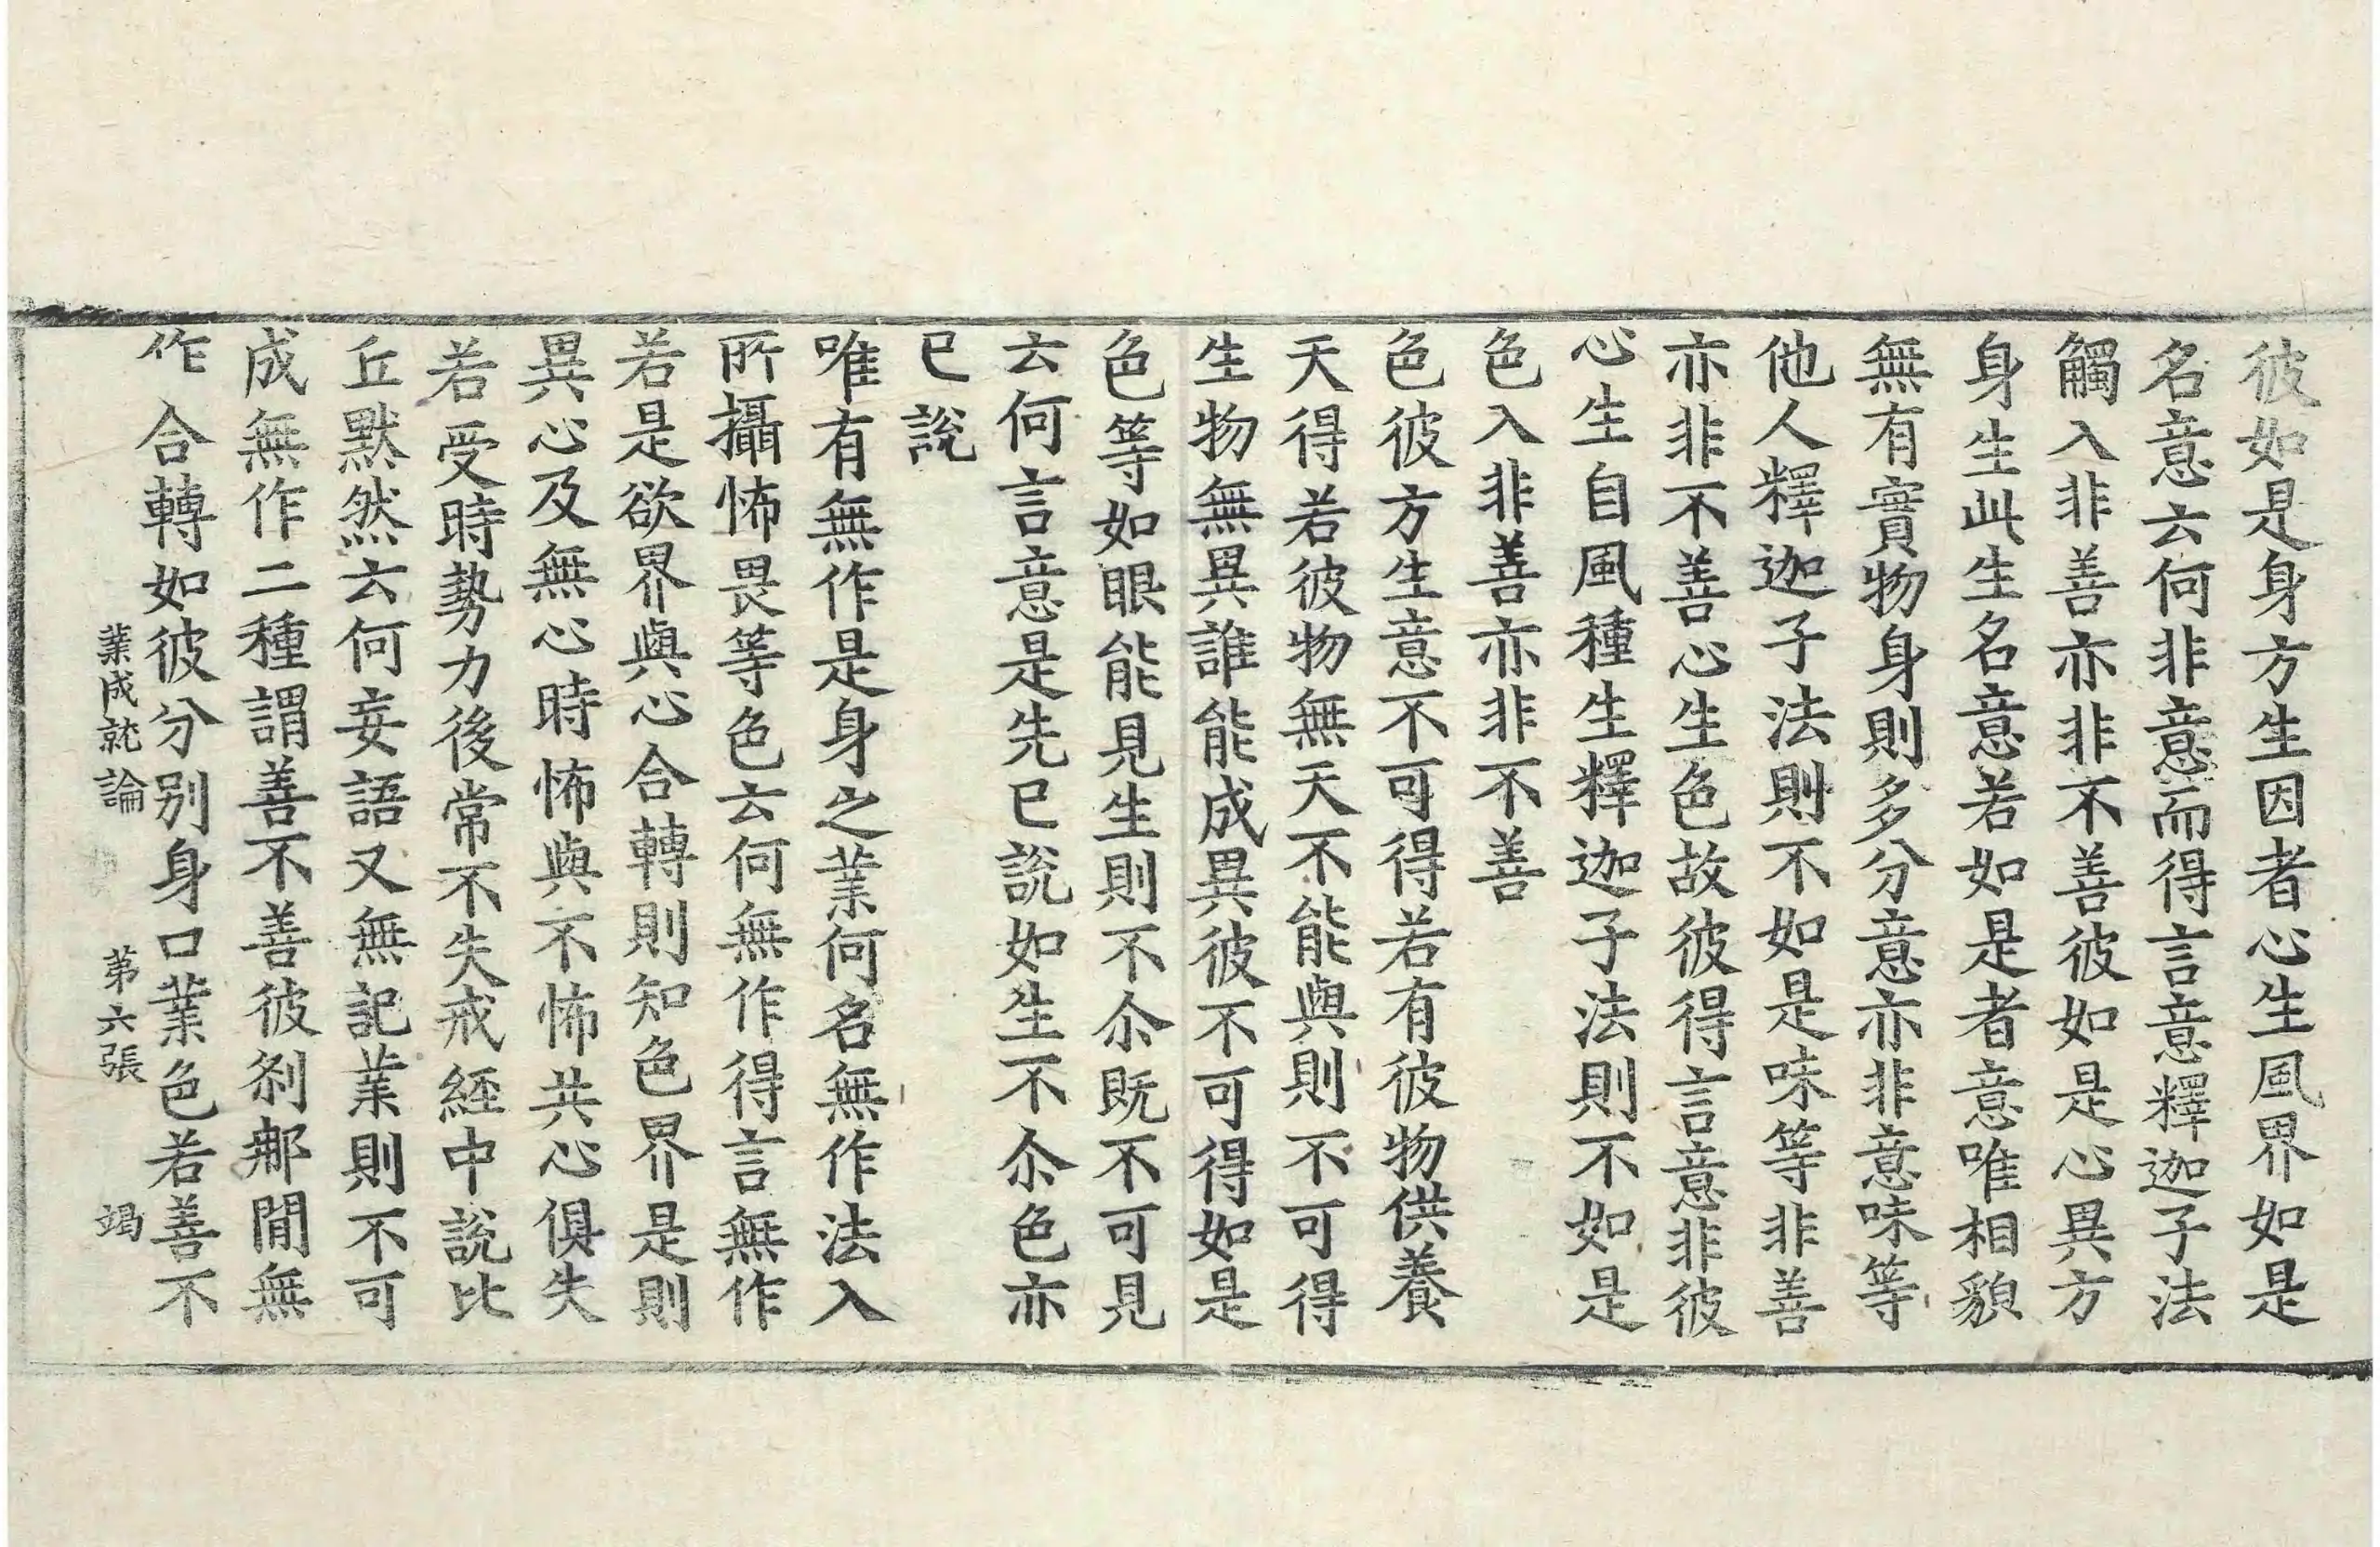 彼如是身方生因者心生風界如是
名意云何非意而得言意釋迦子法
觸入非善亦非不善彼如是心異方
身生此生名意若如是者意唯相貌
無有實物身則多分意亦非意味等
他人釋迦子法則不如是味等非善
亦非不善心生色故彼得言意非彼
心生自風種生釋迦子法則不如是
色入非善亦非不善
色彼方生意不可得若有彼物供養
天得若彼物無天不能與則不可得
生物無異誰能成異彼不可得如是
色等如眼能見生則不尒既不可見
云何言意是先已說如生不尒色亦
已說
唯有無作是身之業何名無作法入
所攝怖畏等色云何無作得言無作
若是欲界與心合轉則知色界是則
異心及無心時怖與不怖共心俱失
若受時勢力後常不失戒經中說比
丘默然云何妄語又無記業則不可
成無作二種謂善不善彼剎那閒無
作合轉如彼分別身口業色若善不
業成就論 第六張 竭